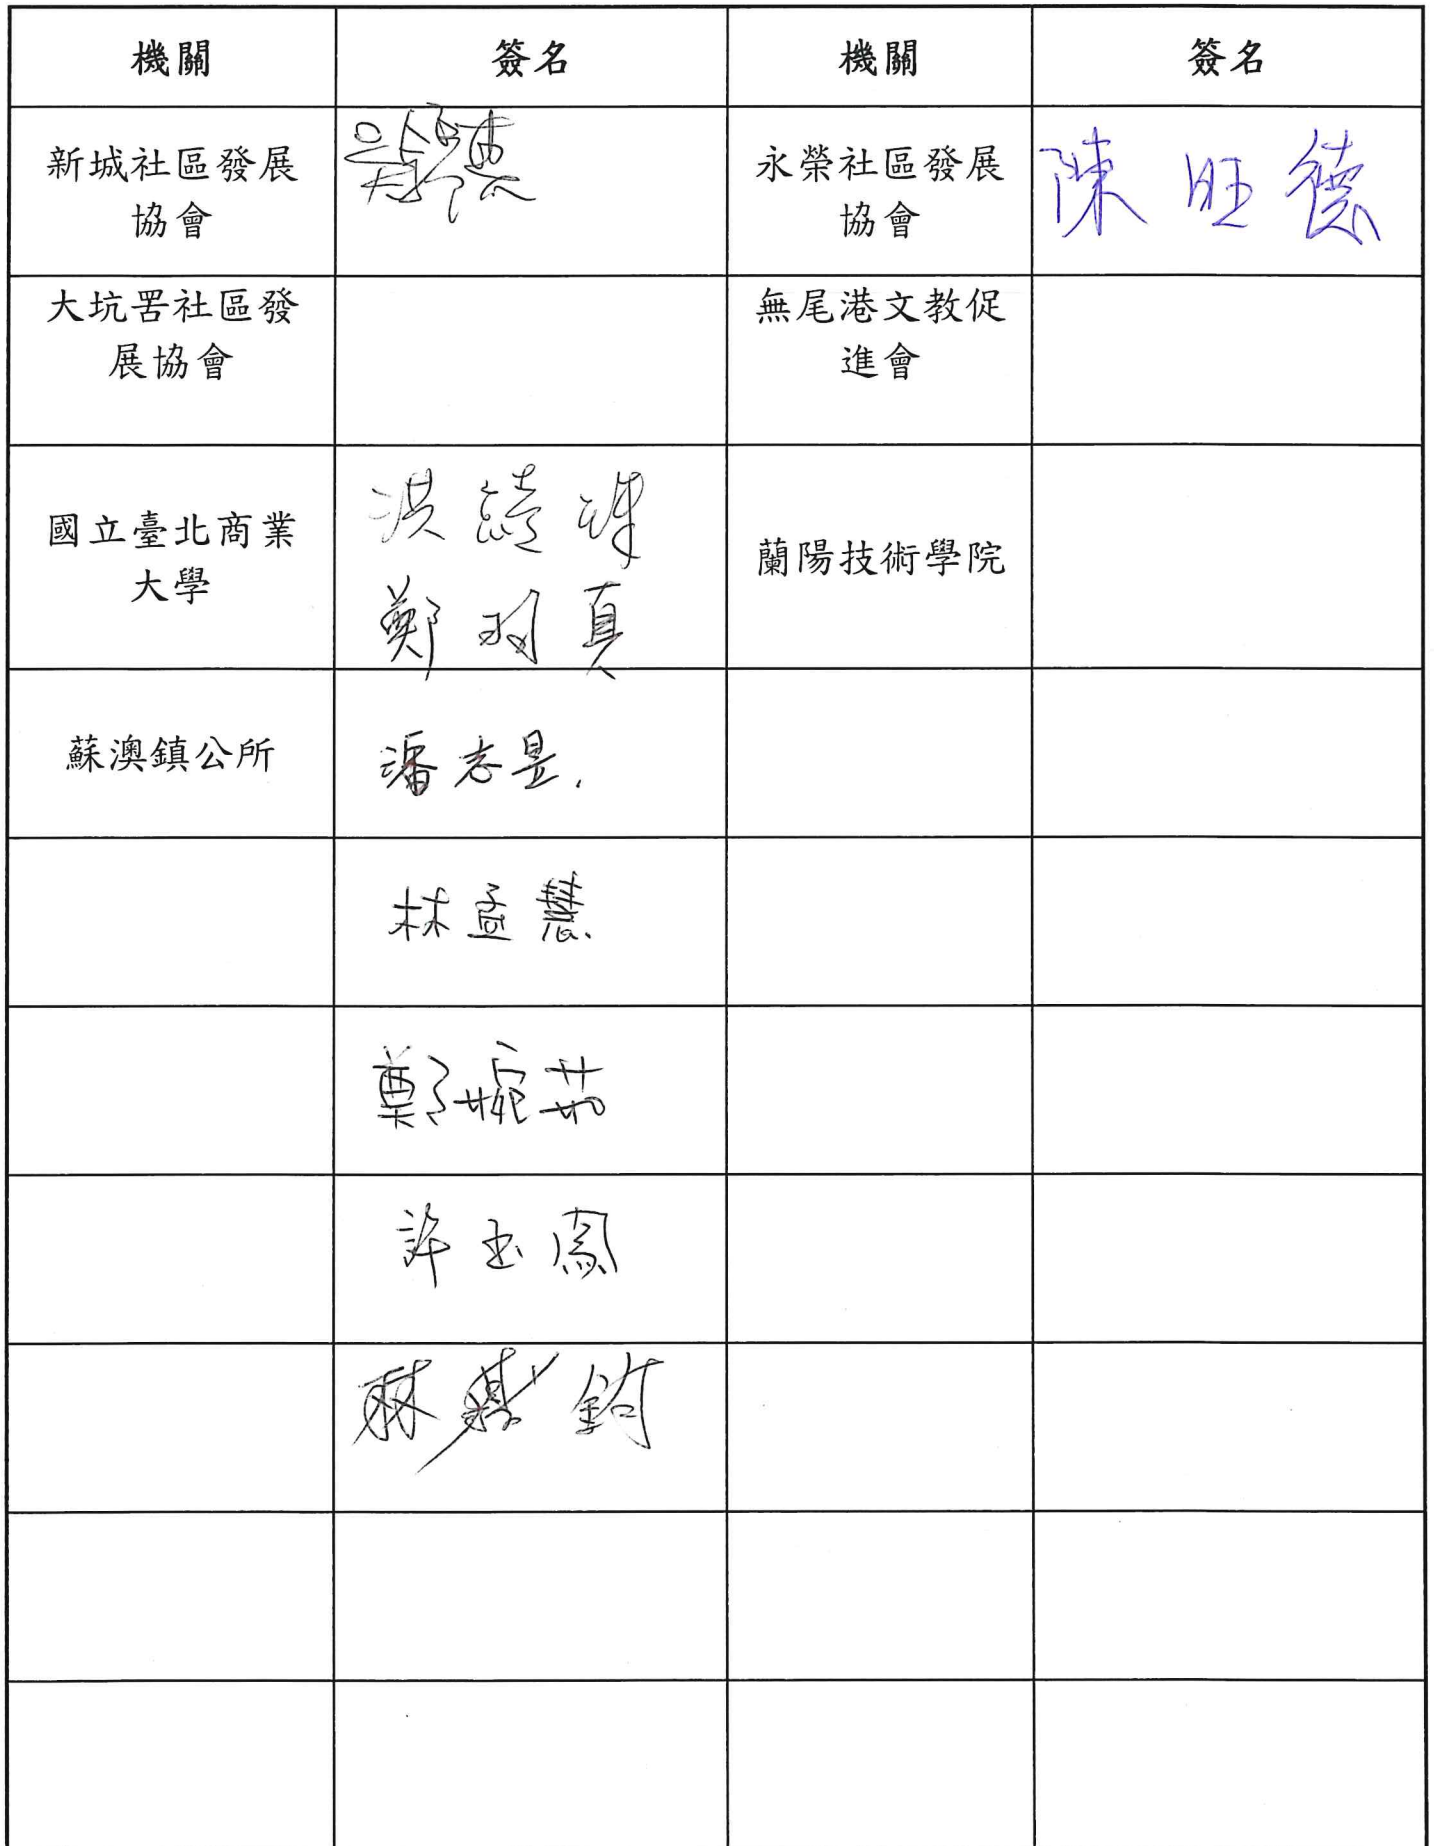 機關 簽名 機關 簽名
新城社區發展
協會
永榮社區發展
協會
陳旺德
大坑罟社區發
展協會
無尾港文教促
進會
國立臺北商業
大學
洪
鄭羽真
蘭陽技術學院
蘇澳鎮公所
潘志昱.
林孟慧
鄭婉茹
許玉鳳
林